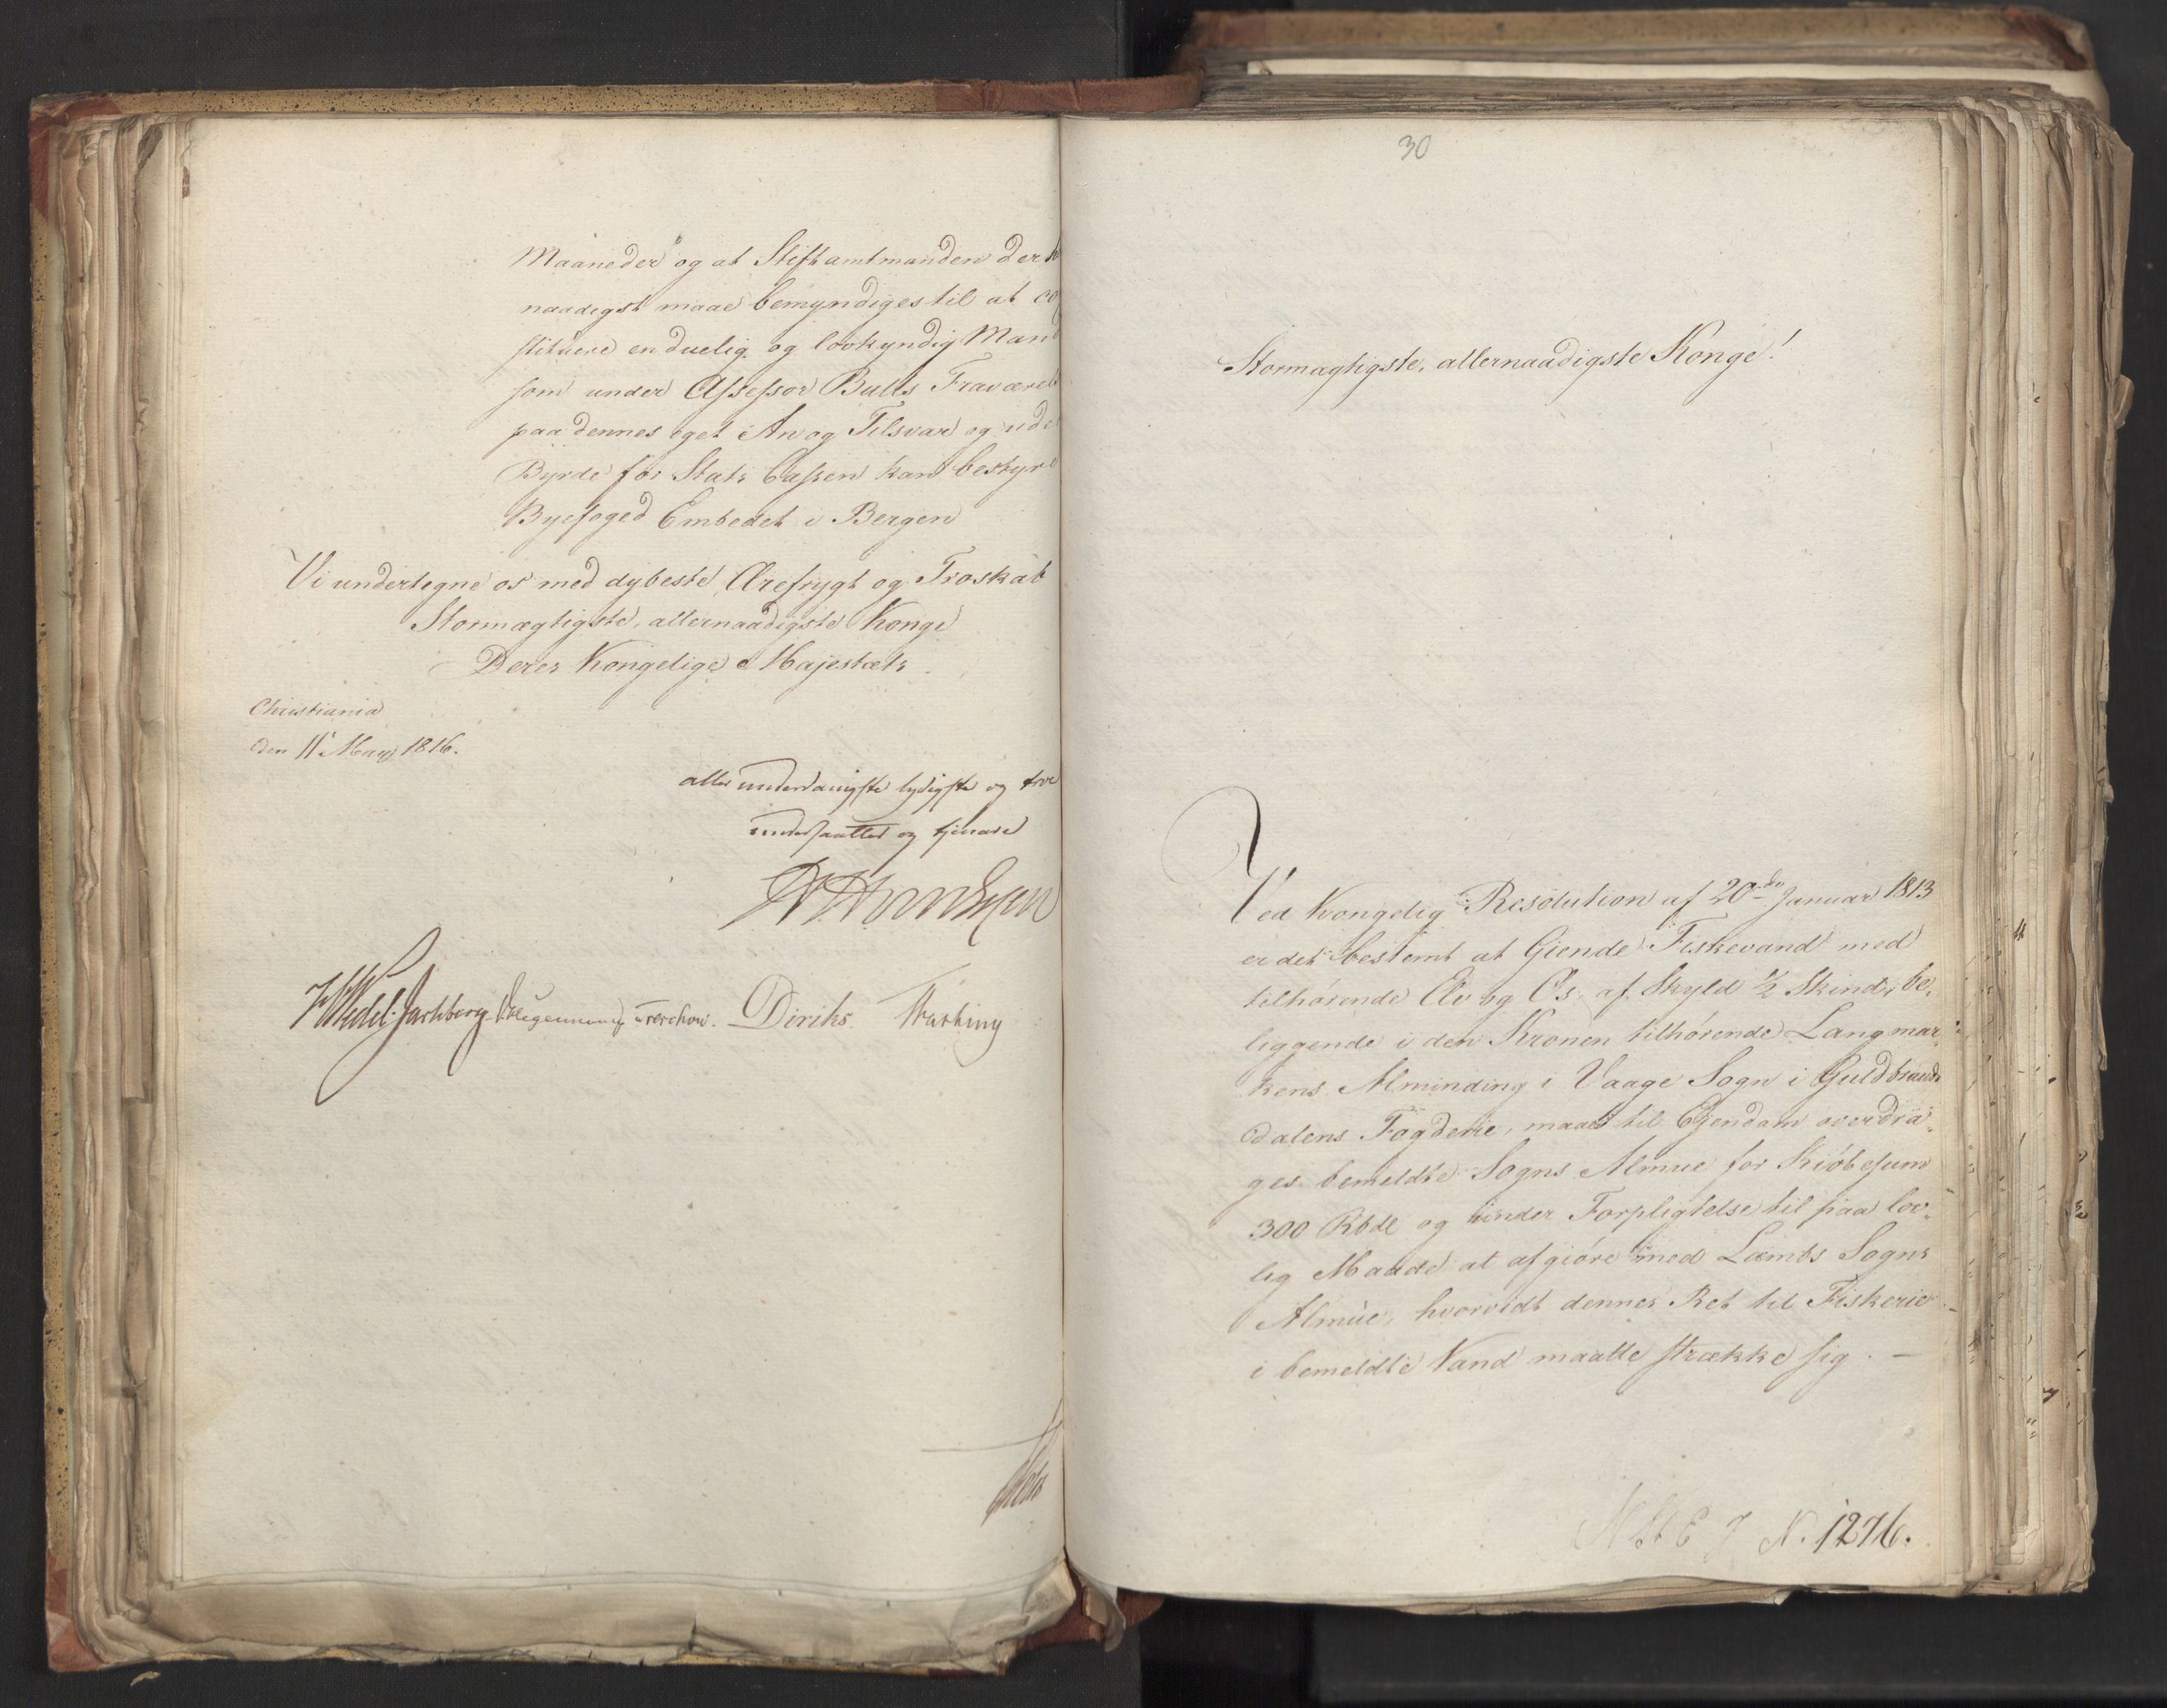 Maaneder og at Stiftamtmanden der
naadigst maae bemyndiges til at co
stituere en duelig og lovkyndig Mand
som under Assessor Bulls Fraværel
paa dennes eget An og Tilsvar og ude
Byrde for Stats Cassen kan bestyre
Byefoged Embedet i Bergen
Vi undertegne os med dybeste Ærefrygt og Troskab
Stormægtigste, allernaadigste Konge
Deres Kongelige Majestæts
Christiania
den 11 May 1816.
allerunderdanigste lydigste og troe
undersaatter og tjenere
Wedel Jarlsberg Treschow. Diriks.
30
Stormægtigste, allernaadigste Konge!
Ved Kongelig Resolution af 20de Januar 1813
er det bestemt at Giende Fiskevand med
tilhörende Elv og Os, af Skyld 1/2 Skind, be-
liggende i den Kronen tilhörende Langmar-
kens Alminding i Vaage Sogn i Guldbrands
dalens Fogderie, maae til Ejendom overdra-
ges bemeldte Sogns Almue for Kiöbesum
300 Rbdl og under Forpligtelse til paa lov-
lig Maade at afgiöre med Lombs Sogns
Almue, hvorvidt dennes Ret til Fiskerie
i bemeldte Vand maatte strække sig. —
N. 1276.